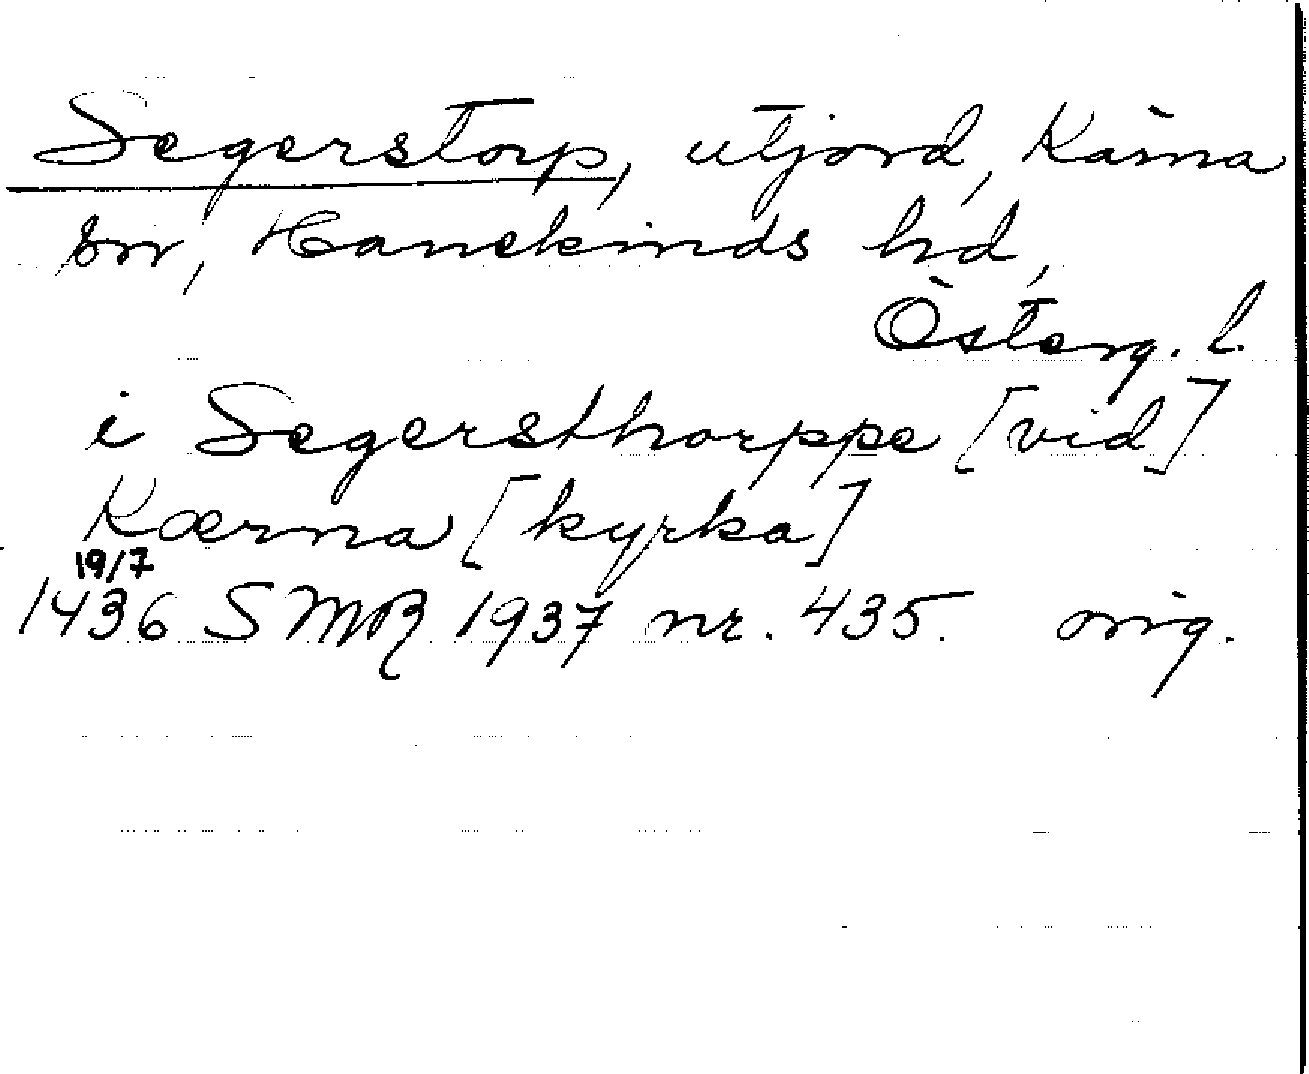 Segerstorp, utjord, Kärna
sn, Hanekinds hd,
Österg. l.
i Segersthorppe [vid]
Kærna [kyrka]
19/7
1436 SMR 1937 nr. 435. orig.